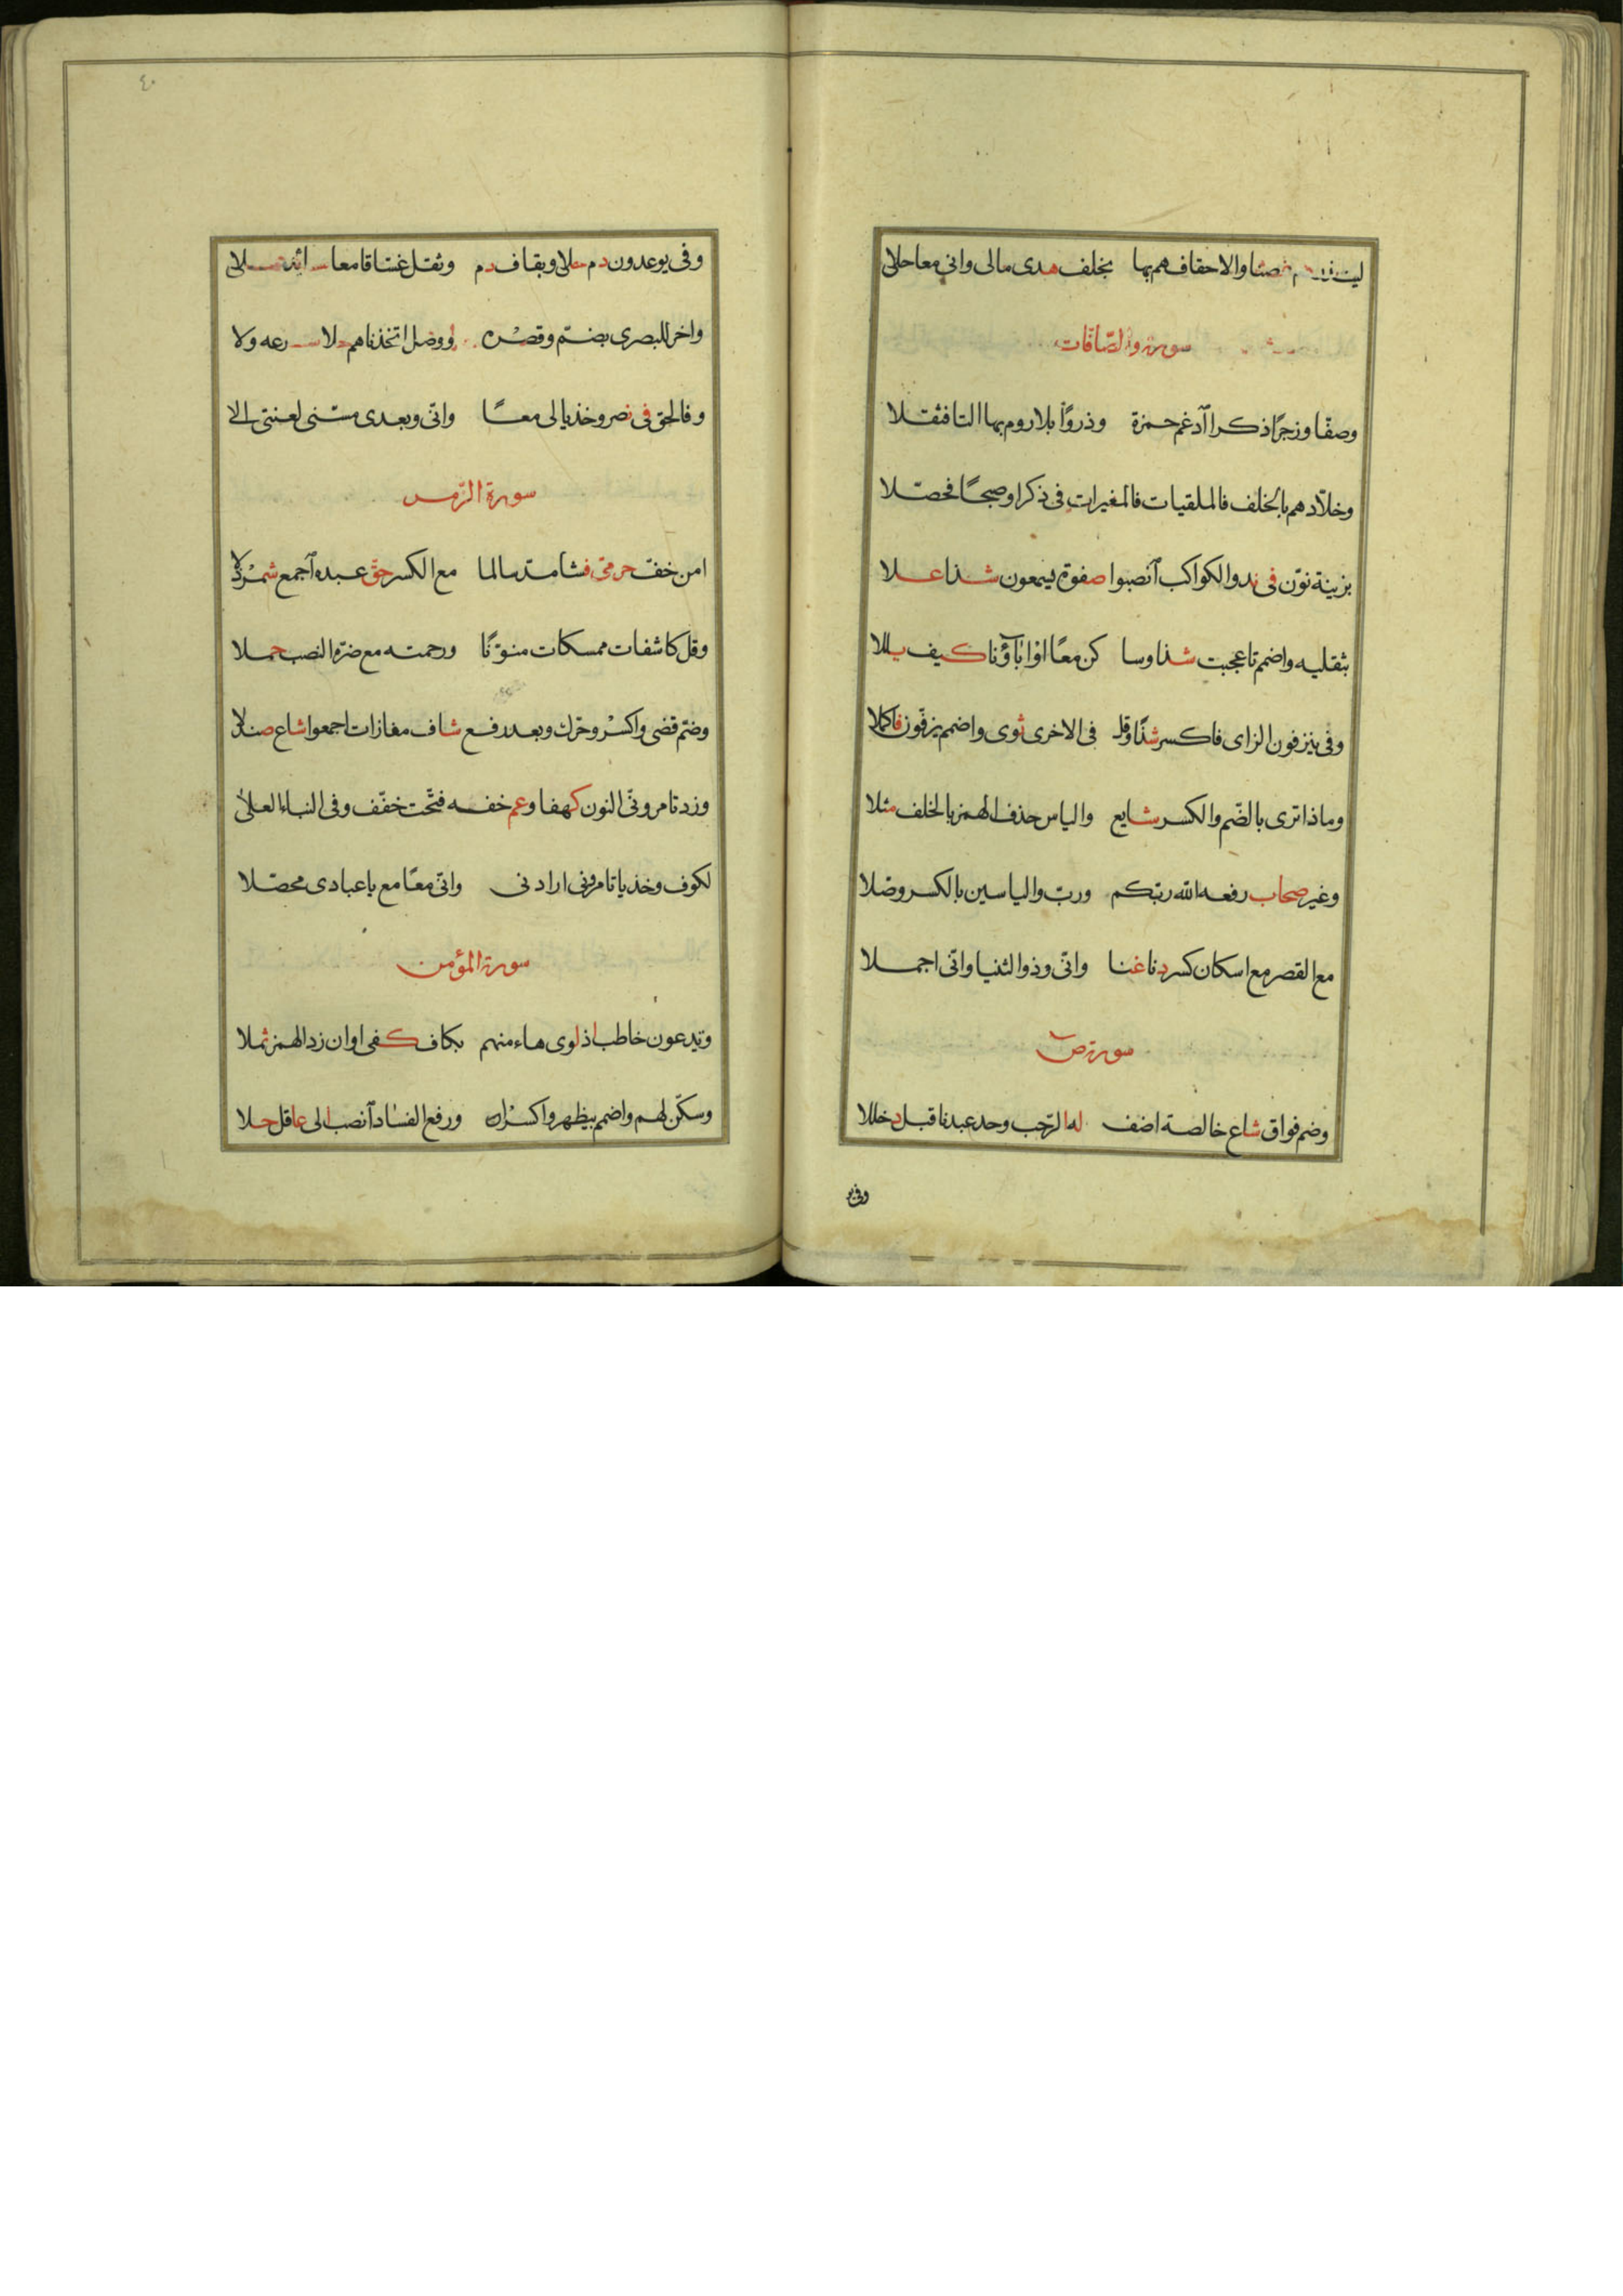 لينذر دم غصنا والاحقاف هم بها بخلف هدى مالى وانى معا حلا
سورة والصّافات
وصفّا وزجرًا ذكرا ادغم حمزة وذروًا بلا روم بها التا فثقلا
وخلّادهم بالخلف فالملقيات فالمغيرات فى ذكرا وصبحًا فحصّلا
بزينة نوّن فى ند والكواكب انصبوا صفوة يسمعون شذا علا
بثقليه واضمم تا عجبت شذا وسا كن معًا او اباؤنا كيف بللا
وفى ينزفون الزاى فاكسر شذًا وقل فى الاخرى ثوى واضمم يزفّون فاكملا
وماذا ترى بالضّم والكسر شايع والياس حذف الهمز بالخلف مثلا
وغير صحاب رفعه الله ربّكم وربّ والياسين بالكسر وصّلا
مع القصر مع اسكان كسر دنا غنا وانّى وذو الثنيا وانّى اجملا
سورة ص
وضم فواق شاع خالصة اضف له الرّحب وحد عبدنا قبل دخللا
وفى يو
٤٠
وفى يوعدون دم حلا وبقاف دم وثقل غسّاقا معا شائد علا
واخر للبصرى بضمّ وقصْره ووصل اتخذناهم حلا شرعه ولا
وفالحق فى نصر وخذ يا لى معًا وانّى وبعدى مسّنى لعنتى الى
سورة الزّمر
امن خفّ حرمى فشا مدّ سالما مع الكسر حقّ عبده اجمع شمرْدلا
وقل كاشفات ممسكات منوّنًا ورحمته مع ضرّه النصب حملا
وضمّ قضى واكسرْ وحرّك وبعد رفع شاف مفازات اجمعوا شاع صندلا
وزد تامرونّى النون كهفا وعم خفه فتّحت خفّف وفى النباء العلا
لكوف وخذ يا تامرونى ارادنى وانّى معًا مع يا عبادى محصّلا
سورة المؤمن
ويدعون خاطب اذ لوى هاء منهم بكاف كفى او ان زد الهمز ثملا
وسكّن لهم واضمم بيظهر واكسرْن ورفع الفساد انصب الى عاقل حلا